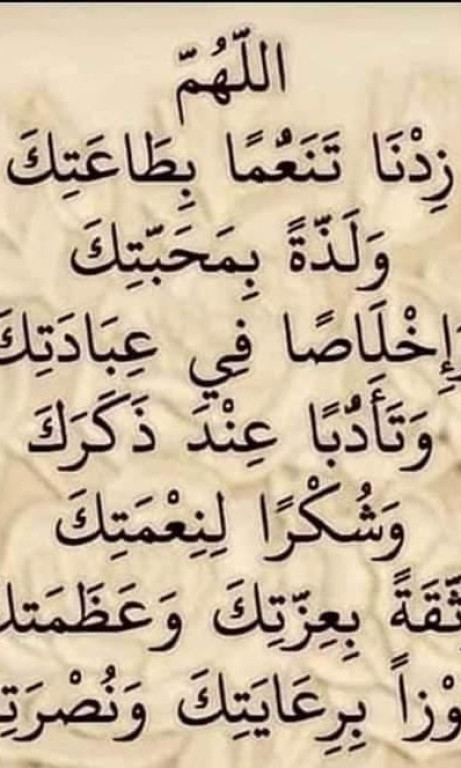 اللّهُمّ
زِدْنَا تَنَعُّمًا بِطَاعَتِكَ
وَلَذّةً بِمَحَبّتِكَ
وَإِخْلَاصًا فِي عِبَادَتِكَ
وَتَأَدُّبًا عِنْدَ ذَكَرَكَ
وَشُكْرًا لِنِعْمَتِكَ
بِعِزّتِكَ وَعَظَمَتك
بِرِعَايَتِكَ